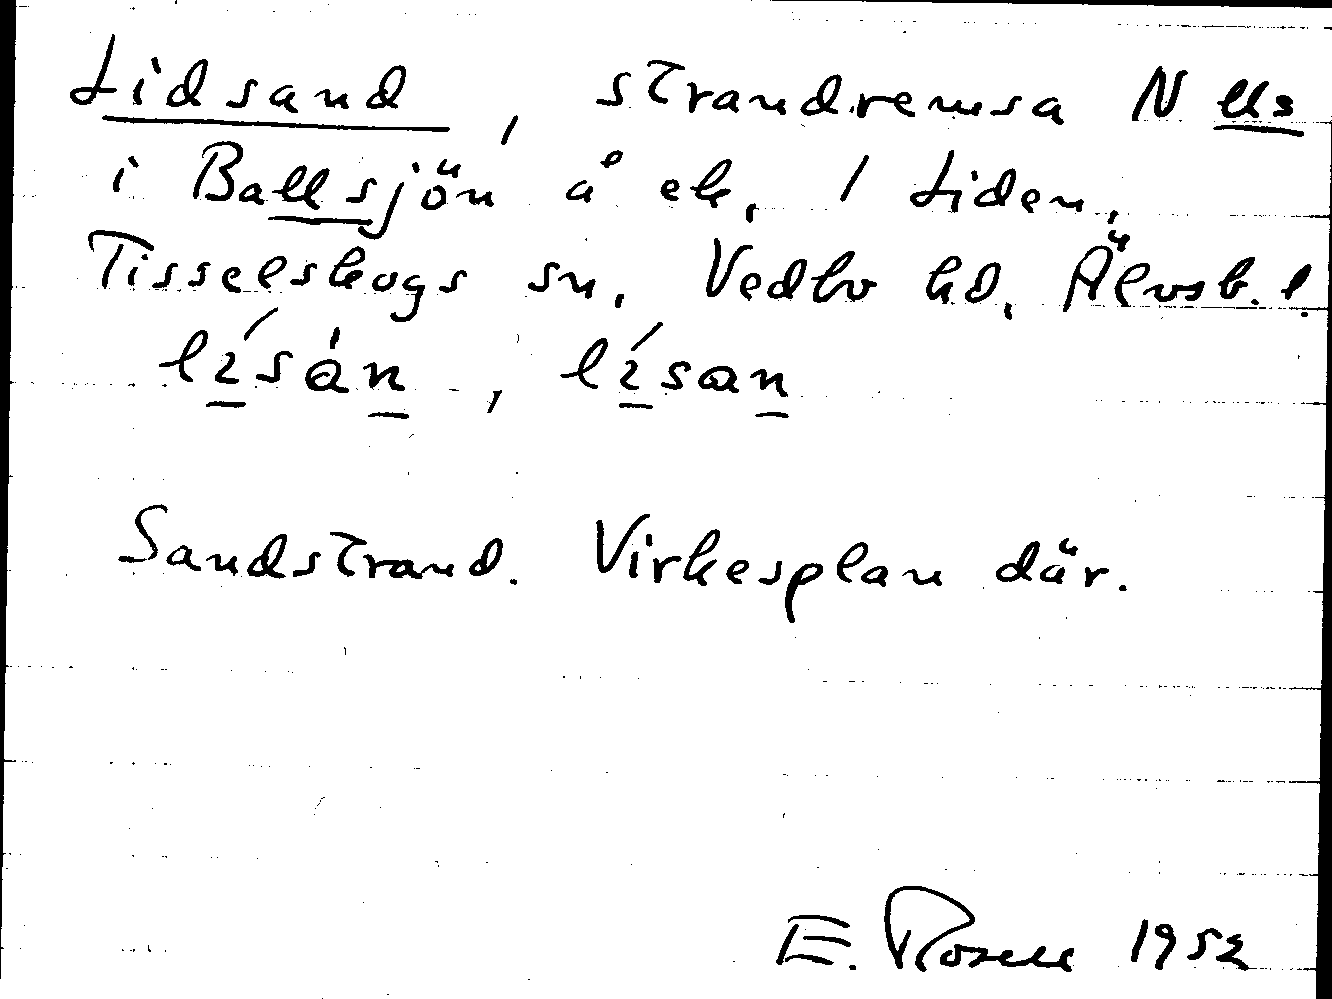 Lidsand, strandremsa N Lls
i Ballsjön å ek. 1 Liden,
Tisselskogs sn. Vedbo hd. Älvsb. l.
lísán, lísan
Sandstrand. Virkesplan där.
E. Rosell 1952